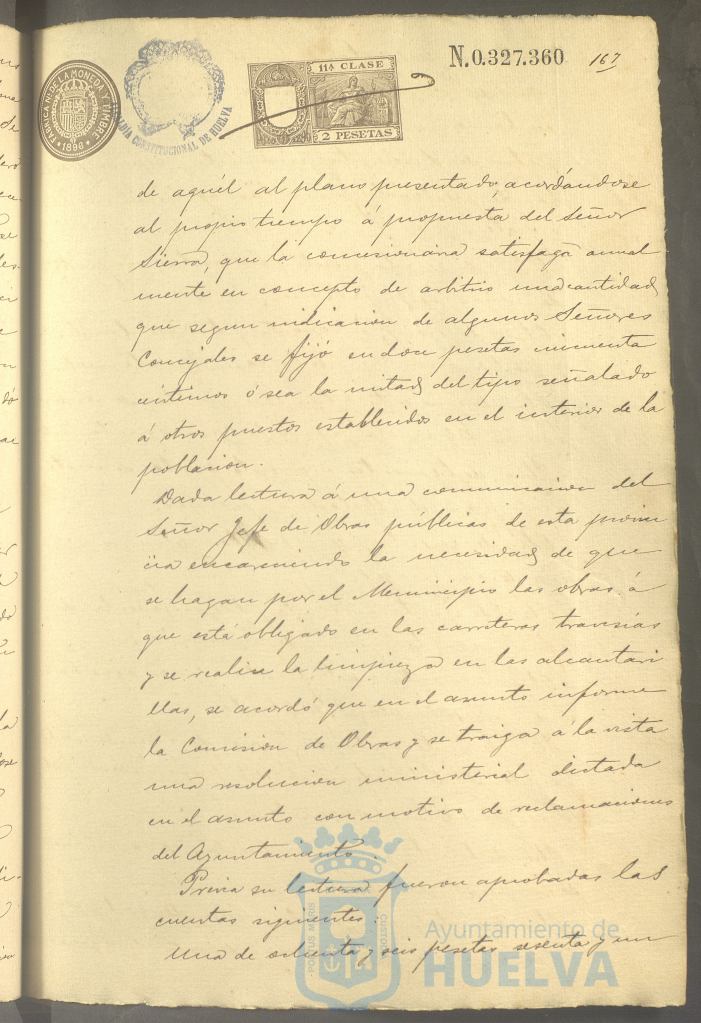 FABRICA NL. DE LA MONEDA Y TIMBRE
1896
ALCALDIA CONSTITUCIONAL DE HUELVA
11ª CLASE
2 PESETAS
N.0.327.360
167
de aquél al plano presentado, acordándose
al propio tiempo á propuesta del Señor
Sierra, que la concesionaria satisfaga anual
mente en concepto de arbitrio una cantidad
que segun indicacion de algunos Señores
Concejales se fijó en dos pesetas cincuenta
céntimos ó sea la mitad del tipo señalado
á otros puestos establecidos en el interior de la
poblacion.
Dada lectura á una comunicacion del
Señor Jefe de Obras públicas de esta provin
cia encareciendo la necesidad de que
se hagan por el Municipio las obras á
que está obligado en las carreteras travesías
y se realice la limpieza en las alcantari
llas, se acordó que en el asunto informe
la Comision de Obras y se traiga á la vista
una resolucion ministerial dictada
en el asunto con motivo de reclamaciones
del Ayuntamiento.
Previa su lectura fueron aprobadas las
cuentas siguientes:
Una de ochenta y seis pesetas sesenta y un
PORTUS MARIS
CUSTODIA
Ayuntamiento de
HUELVA